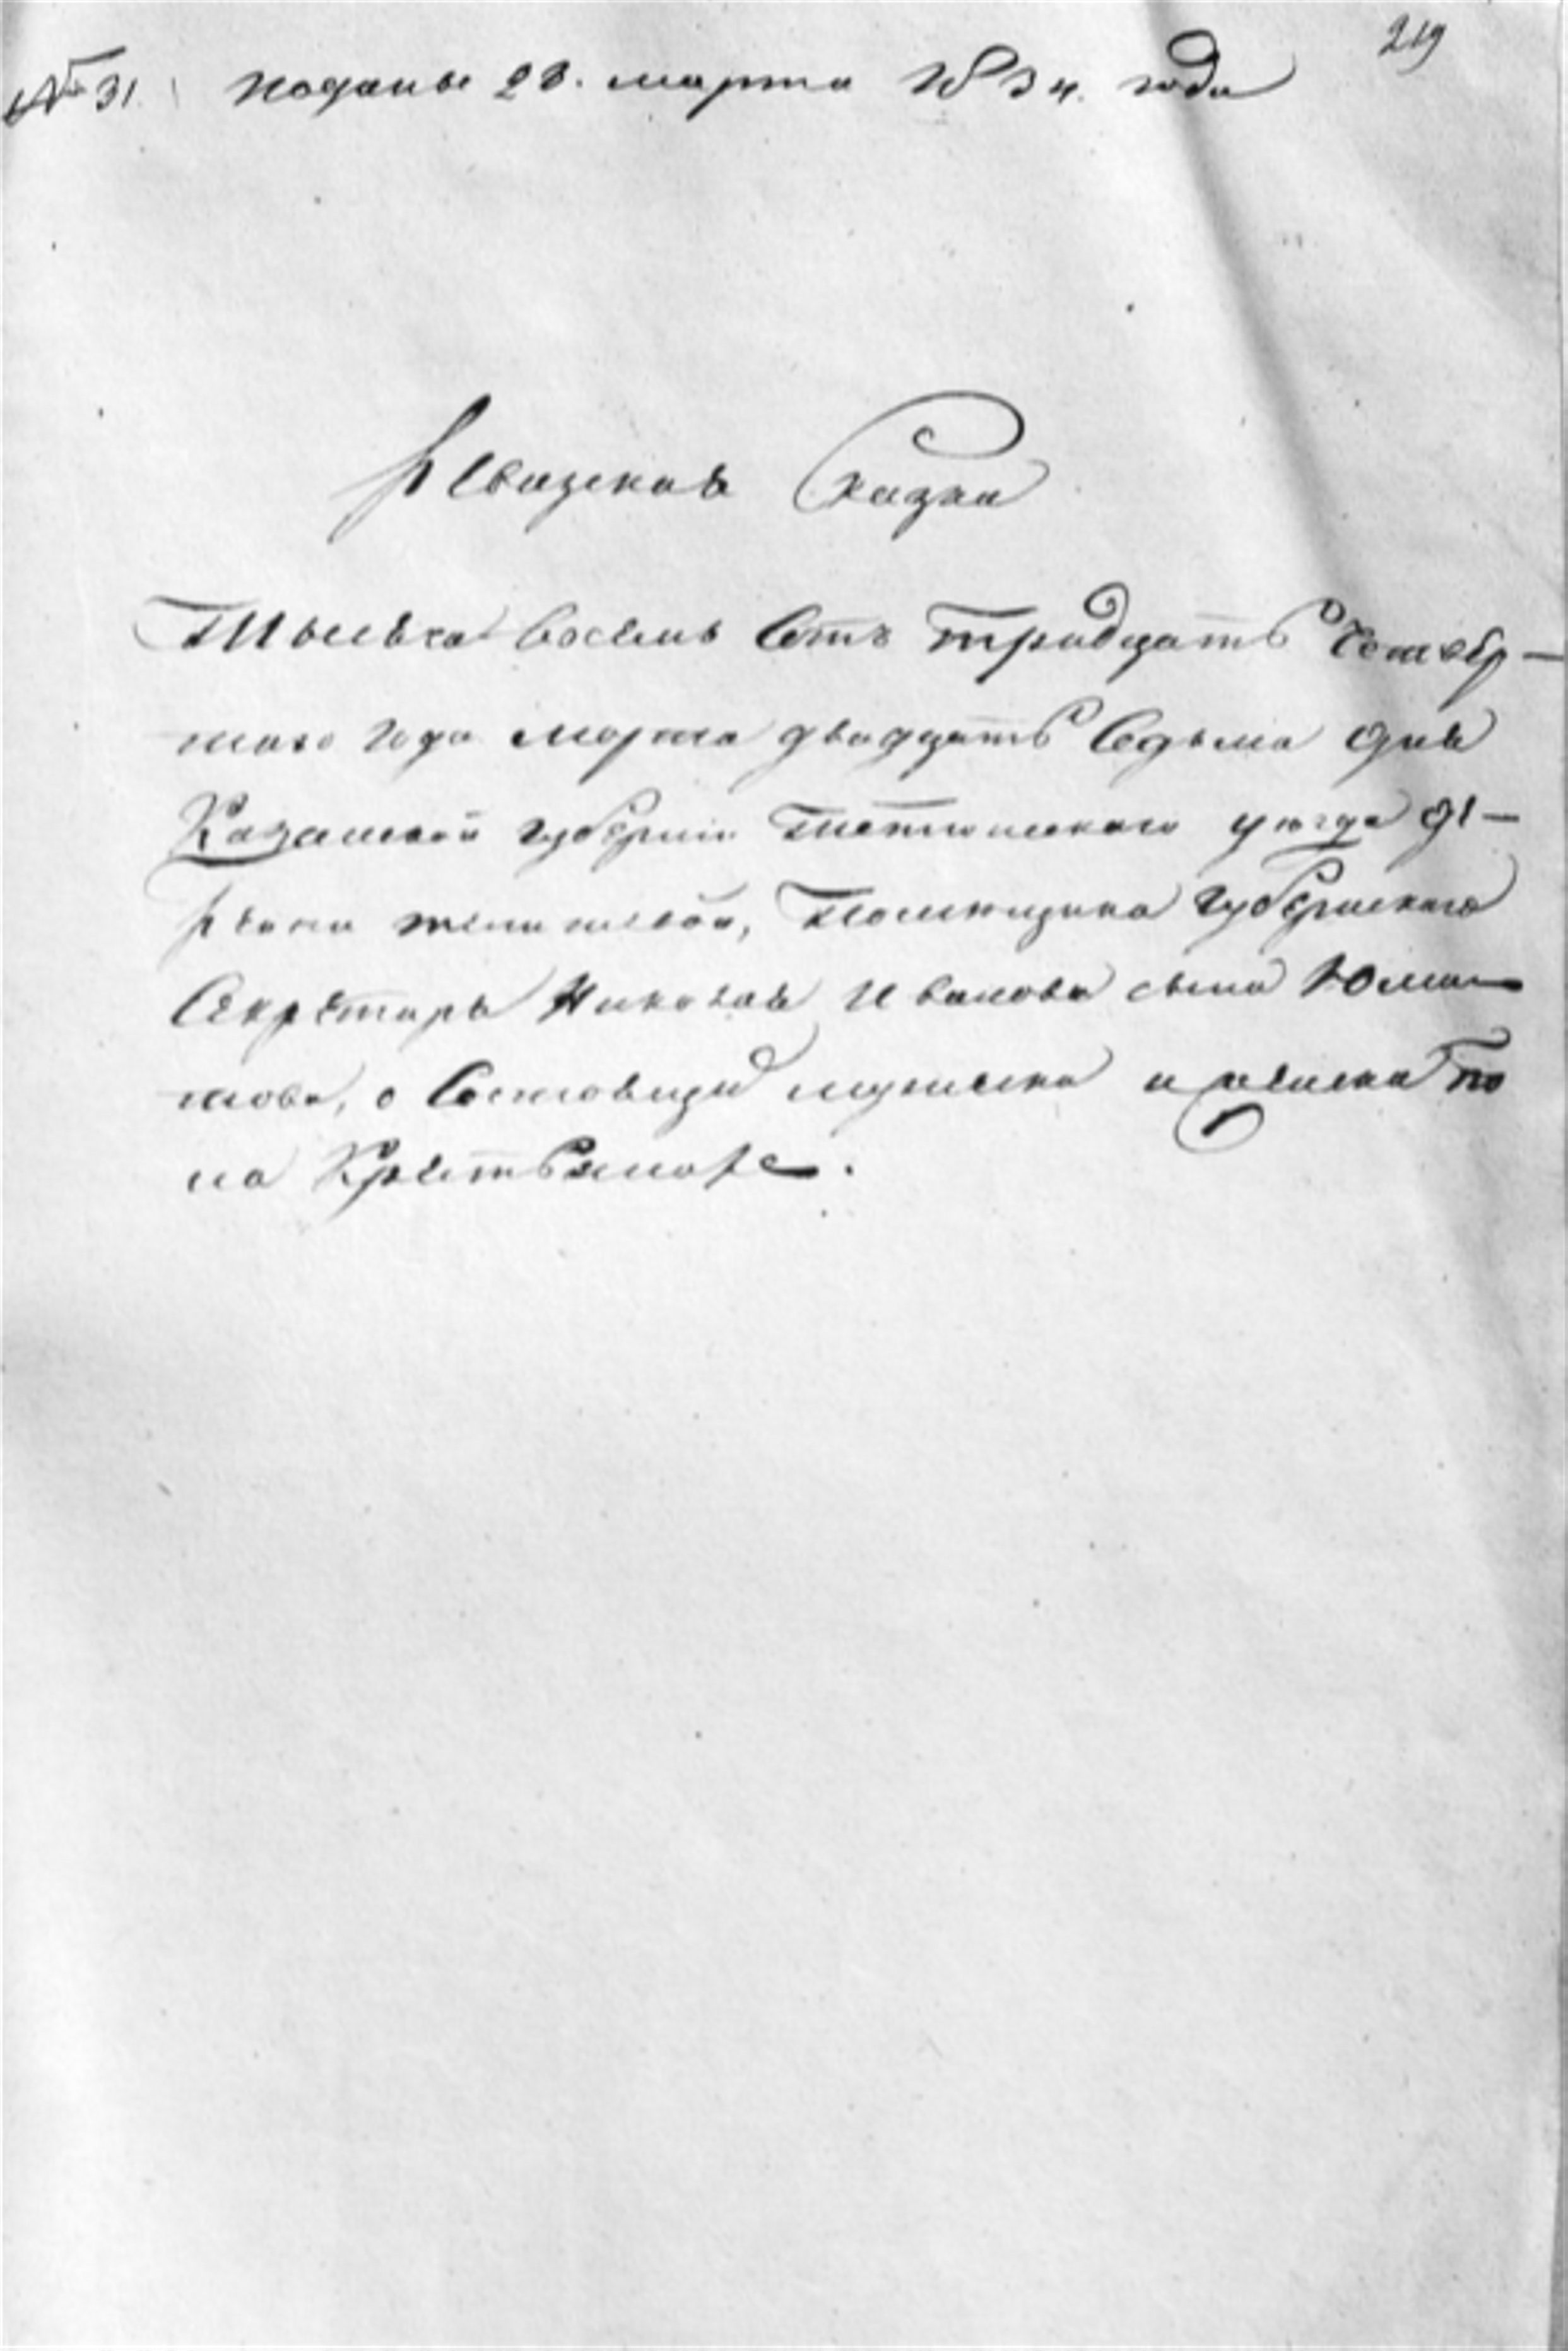 219
№ 31 подана 28. марта 1834. года
Ревизская Сказка
Тысеча восемь Сотъ тридцать Четвер-
таго года марта двадцать Седьма дня
Казанской губернии Тетюшскаго уезда де-
ревни, Помещика губернскаго
Секретаря Николая Иванова сына Юма-
това, о Состоящих мужеска и женска по
ла Крестьянахъ.